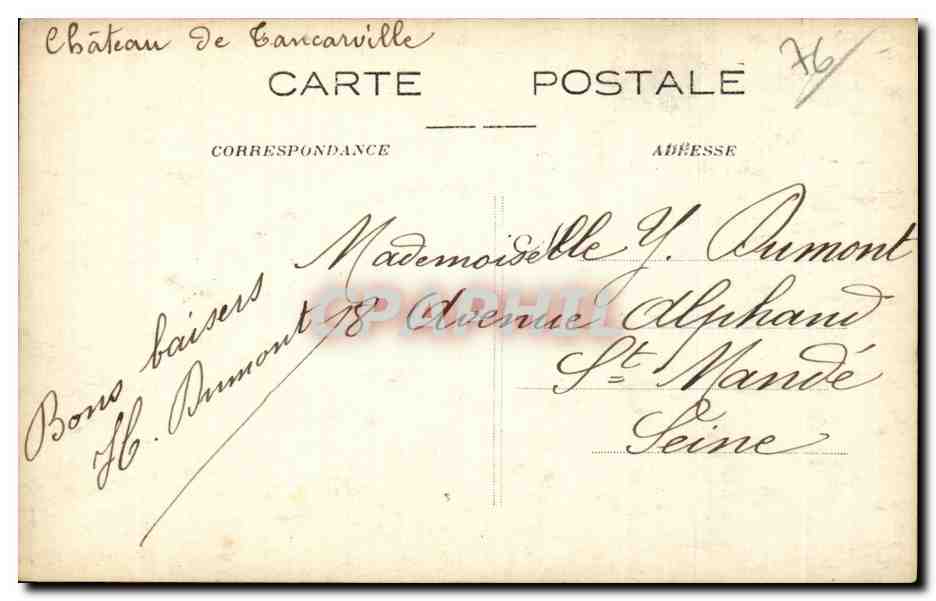 Château de Tancarville
76
CARTE POSTALE
CORRESPONDANCE
ADRESSE
Bons baisers
H. Dumont
Mademoiselle Y. Dumont
18 Avenue Alphand
St Mandé
Seine
CPAPHIL